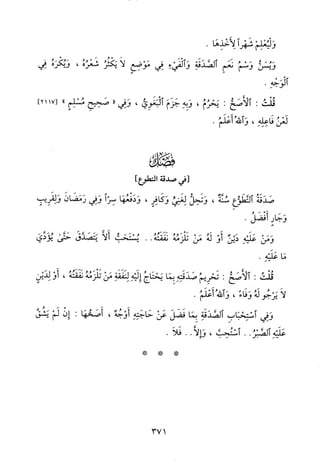 وَلْيُعْلِمْ شَهْراً لِأَخْذِهَا .
وَيُسَنُّ وَسْمُ نَعَمِ ٱلصَّدَقَةِ وَٱلْفَيْءِ فِي مَوْضِعٍ لاَ يَكْثُرُ شَعْرُهُ ، وَيُكْرَهُ فِي
ٱلْوَجْهِ .
قُلْتُ : ٱلأَصَحُّ : يَحْرُمُ ، وَبِهِ جَزَمَ ٱلْبَغَوِيُّ ، وَفِي « صَحِيحِ مُسْلِمٍ » [٢١١٧]
لَعْنُ فَاعِلِهِ ، وَٱللهُ أَعْلَمُ .
فَصْلٌ
[في صدقة التطوع]
صَدَقَةُ ٱلتَّطَوُّعِ سُنَّةٌ ، وَتَحِلُّ لِغَنِيٍّ وَكَافِرٍ ، وَدَفْعُهَا سِرّاً وَفِي رَمَضَانَ وَلِقَرِيبٍ
وَجَارٍ أَفْضَلُ .
وَمَنْ عَلَيْهِ دَيْنٌ أَوْ لَهُ مَنْ تَلْزَمُهُ نَفَقَتُهُ .. يُسْتَحَبُّ أَلاَّ يَتَصَدَّقَ حَتَّىٰ يُؤَدِّيَ
مَا عَلَيْهِ .
قُلْتُ : ٱلأَصَحُّ : تَحْرِيمُ صَدَقَتِهِ بِمَا يَحْتَاجُ إِلَيْهِ لِنَفَقَةِ مَنْ تَلْزَمُهُ نَفَقَتُهُ ، أَوْ لِدَيْنٍ
لاَ يَرْجُو لَهُ وَفَاءً ، وَٱللهُ أَعْلَمُ .
وَفِي ٱسْتِحْبَابِ ٱلصَّدَقَةِ بِمَا فَضَلَ عَنْ حَاجَتِهِ أَوْجُهٌ ، أَصَحُّهَا : إِنْ لَمْ يَشُقَّ
عَلَيْهِ ٱلصَّبْرُ .. ٱسْتُحِبَّ ، وَإِلاَّ .. فَلاَ .
* * *
٣٧١